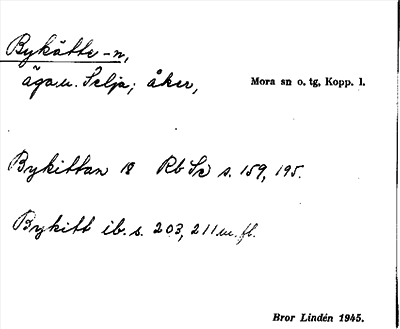 Bykätte -n,
äga u. Selja; åker,
Mora sn o. tg, Kopp. l.
Bykittan 18 Rb Se s. 159, 195.
Bykitt ib. s. 203, 211 m. fl.
Bror Lindén 1945.